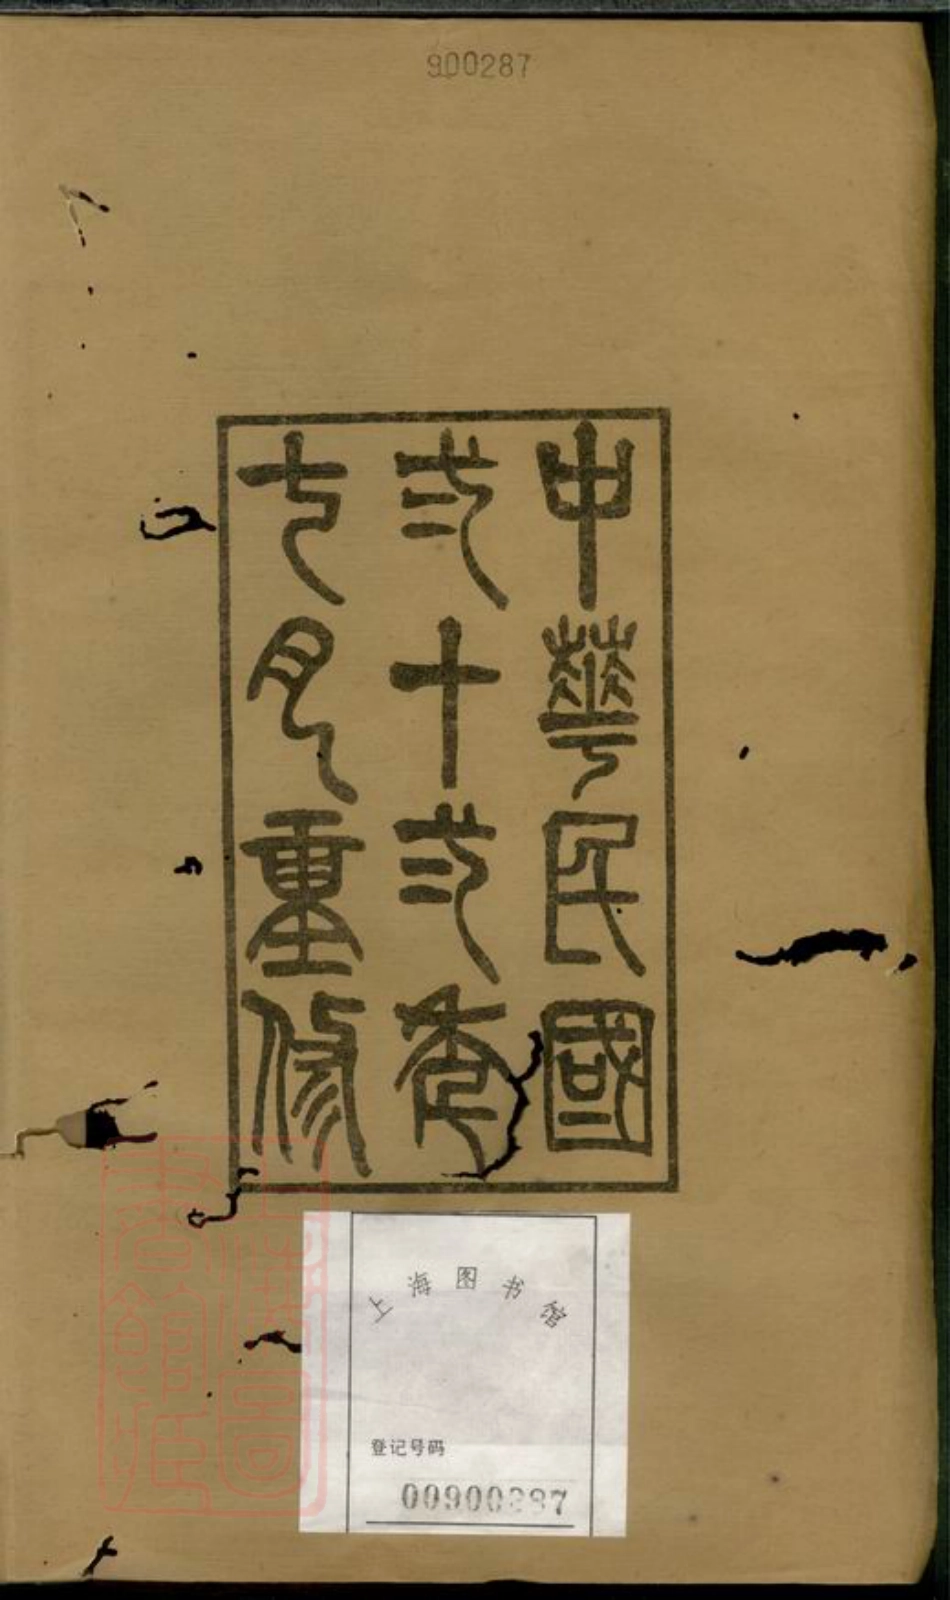 900287
中華民國
弍十弍年
七月重修
上海图书馆
登记号码
00900287
上海圖
書館藏